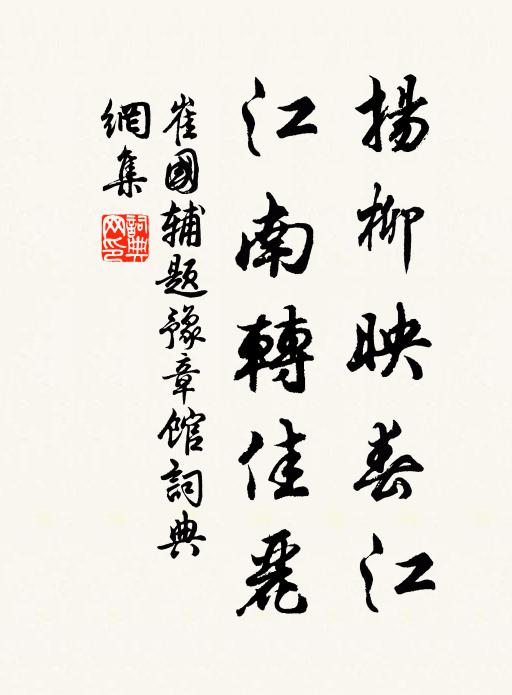 揚柳映春江
江南轉佳麗
崔國輔題豫章館詞典
網集
詞典
网印